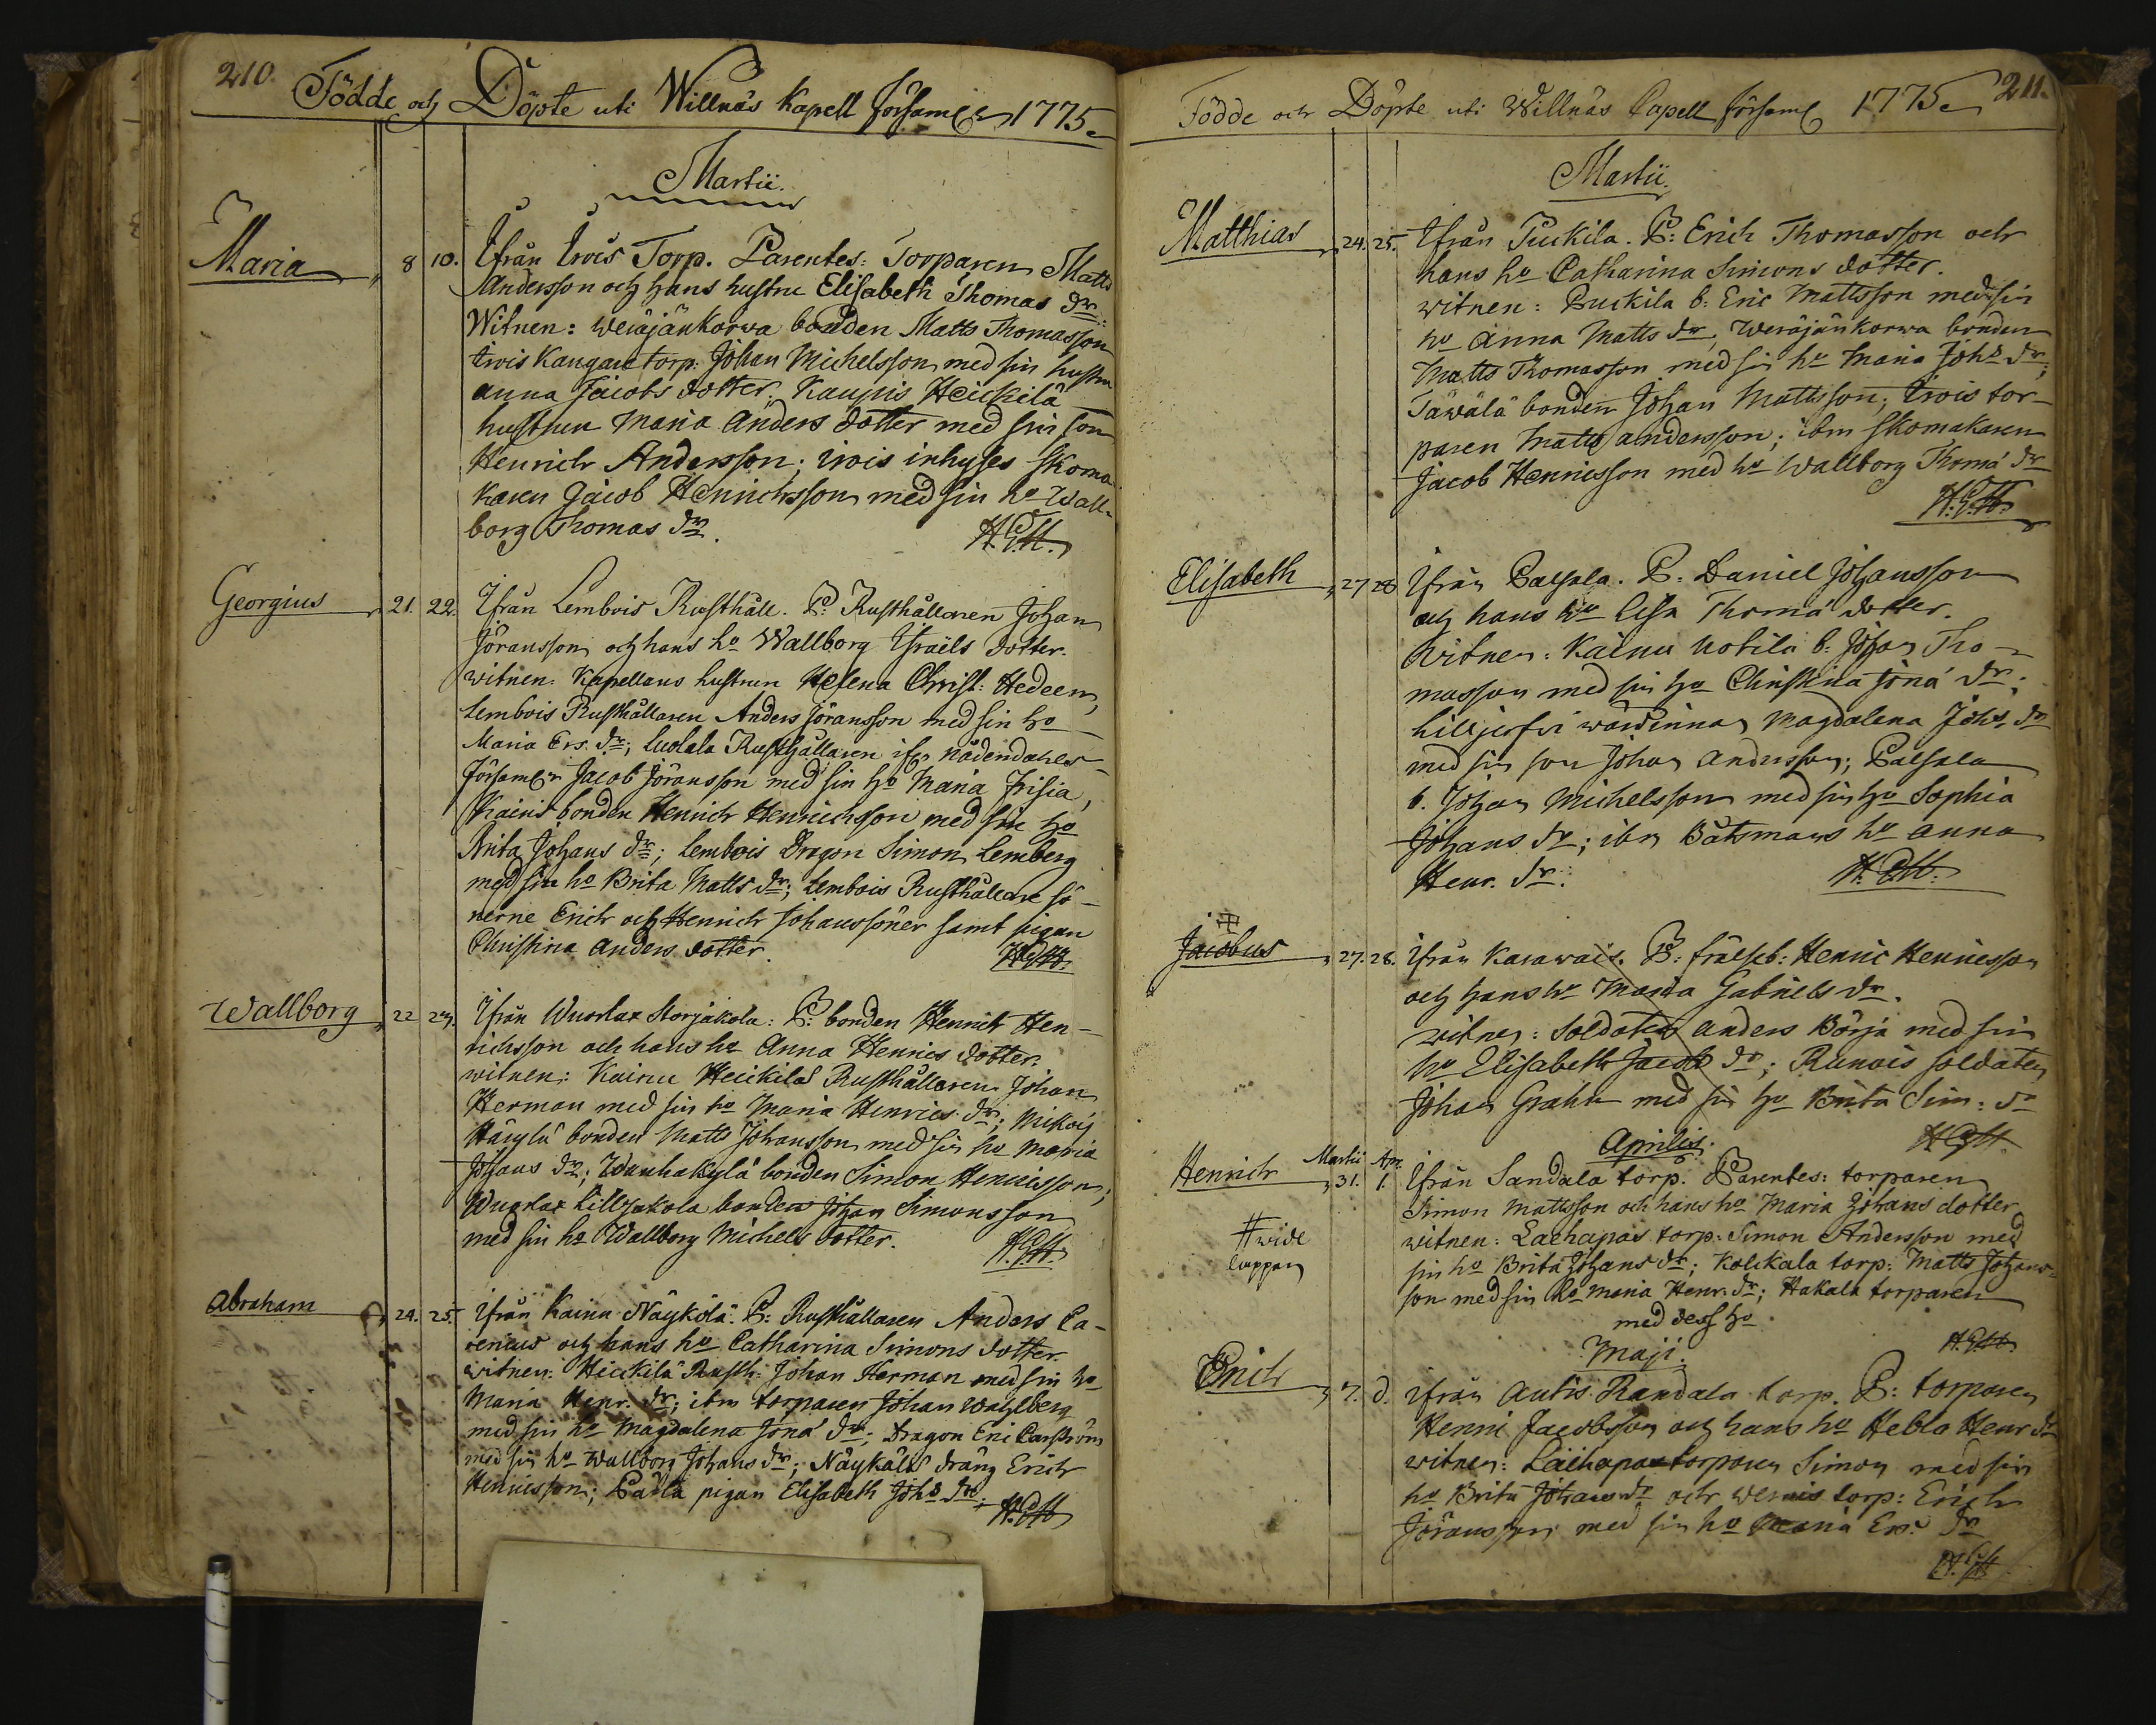 210.
Födde och Döpte uti Willnäs Kapell Församl 1775
Martii.
Maria 8 10. Ifrån Irois Torp. Parentes: Torparen Matts
Andersson och hans hustru Elisabeth Thomas dr:
Witnen: weräjänkorwa bonden Matts Thomasson
Irois Kangare torp: Johan Michelsson med sin hustru
Anna Jacobs dotter. Kaupis Heickilä
hustrun Maria Anders dotter med sin son
Henrich Andersson; Irois inhyses Skoma
karen Jacob Henrichsson med sin ho Wall-
borg Thomas dr.
Georgius 21. 22. Ifrån Lembois Rusthåll. P: Rusthållaren Johan
Jöransson och hans ho Wallborg Israëls dotter.
witnen: Kapellans hustrun Helena Christ: Hedeen,
Lembois Rusthållaren Anders Jöransson med sin ho
Maria Ers. dr; Luolala Rusthållaren ifr Nådendahls
Församl Jacob Jöransson med sin ho Maria Frisia,
Kainis bonden Henrich Henrichsson med sin ho
Anita Johans dr; Lembois Dragon Simon Lemberg
med sin ho Brita Matts dr; Lembois Rusthållare sö-
nerne Erich och Henrich Johanssöner samt pigan
Christina Anders dotter.
Wallborg 22 23. Ifrån Wuorlax Storjakola: P: bonden Henrich Hen-
richsson och hans ho Anna Henrics dotter.
witnen: Kainu Heickilä Rusthållaren Johan
Herman med sin ho Maria Henrics dr; Mikois
bonden Matts Johansson med sin ho Maria
Johans dr; Wanhakylä bonden Simon Henricsson;
Wuorlax Lilljakola bonden Johan Simonsson
med sin ho Wallborg Michels dotter.
Abraham 24. 25. Ifrån Kainu Näykölä. P: Rusthållaren Anders Ca-
renius och hans ho Catharina Simons dotter.
witnen: Heickilä Rusth: Johan Herman med sin ho
Maria Henr. dr; ibm torparen Johan Wahlberg
med sin ho Magdalena Jona dr; Dragon Eric
med sin ho Wallborg Johans dr; Näykälä dräng Erich
Henricsson; pigan Elisabeth Johs dr;
211.
Födde och Döpte uti Willnäs Capell församl 1775
Martii.
Matthias 24. 25. Ifrån Puckila. P: Erich Thomasson och
hans ho Catharina Simons dotter.
witnen: Puckila b: Eric Mattsson med sin
ho Anna Matts dr, Weräjänkorwa bonden
Matts Thomasson med sin ho Maria Johs dr;
Täwälä bonden Johan Mattsson; Irois tor-
paren Matts Andersson; ibm Skomakaren
Jacob Henricsson med ho Wallborg Thoma dr
Elisabeth 27 28 Ifrån Palsala. P: Daniel Johansson
och hans ho Lisa Thoma dotter.
Witnen: Kainu Uotila b: Johan Tho-
masson med sin ho Christina Jona dr;
wärdinnan Magdalena Johs dr
med sin son Johan Andersson; Palsala
b. Johan Michelsson med sin ho Sophia
Johans dr; ibm Båtsmans ho Anna
Henr. dr.
Jacobus 27. 28. ifrån Karawais. P: frälseb: Henric Henricsson
och hans ho Maria Gabriels dr.
witnen: Soldaten Anders Börja med sin
ho Elisabeth Jacobs dr; Runois soldaten
Johan Grahn med sin ho Brita Sim: dr
Aprilis.
Martii Apr.
Henrich 31. 1. Ifrån Sandala torp. Parentes: torparen
Simon Mattsson och hans ho Maria Johans dotter
# wide
lappen
witnen: Laihapais torp: Simon Andersson med
sin ho Brita Johans dr; Kolckala torp: Matts Johans-
son med sin ho Maria Henr: dr; Hakala torparen
med dess ho.
Maji.
Erich 7. d. ifrån Autis Randala torp. P: torparen
Henric Jacobsson och hans ho Hebla Henr dr
witnen: Laihapas torparen Simon med sin
ho Brita Johans dr och torp: Erich
Jöransson med sin ho Maria Ers: dr